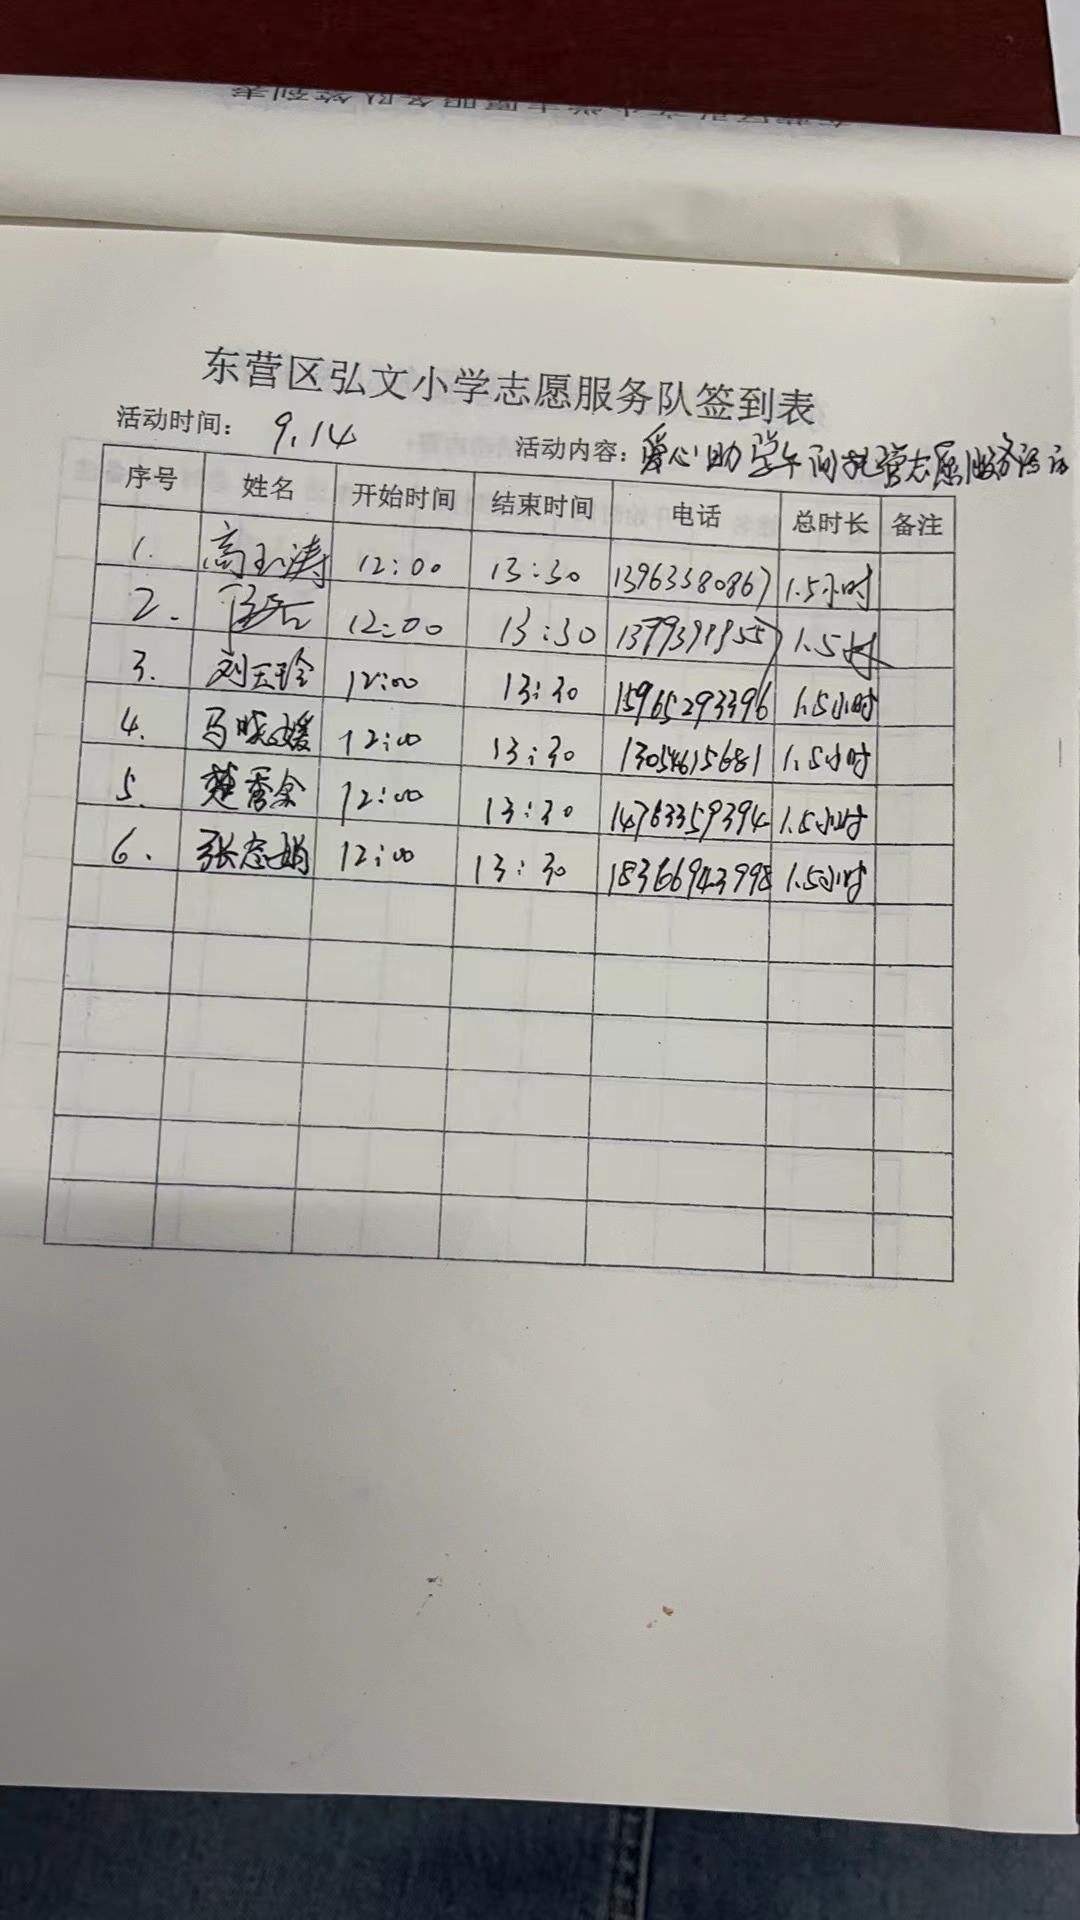 东营区弘文小学志愿服务队签到表
活动时间： 9.14 活动内容：爱心助学午间托管志愿服务活动
序号 姓名 开始时间 结束时间 电话 总时长 备注
1. 高玉涛 12:00 13:30 13963380867 1.5小时
2. 12:00 13:30 1.5小时
3. 刘玉玲 12:00 13:30 15965293396 1.5小时
4. 马晓媛 12:00 13:30 13054615681 1.5小时
5. 楚秀 12:00 13:30 14763359394 1.5小时
6. 张志娟 12:00 13:30 18366943998 1.5小时